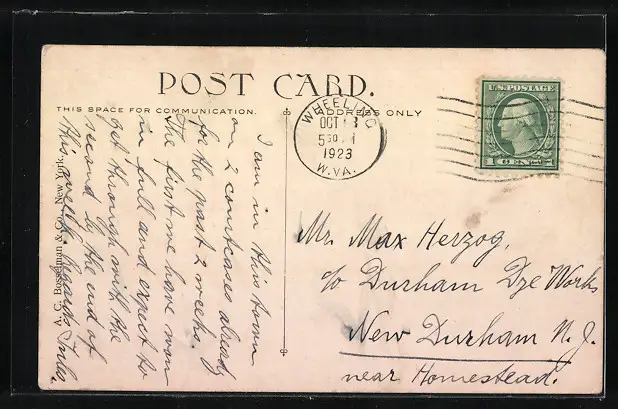 POST CARD.
THIS SPACE FOR COMMUNICATION.
ADDRESS ONLY
WHEELING
OCT 13
5 30
1923
W. VA.
U.S. POSTAGE
1 CENT
I am in this town
on 2 courtcases already
for the past 2 weeks.
The first we have won
in full and expect to
get through with the
second by the end of
this week. Regards Jules.
A. C. Bosselman & Co., New York.
Mr. Max Herzog,
c/o Durham Dye Works
New Durham N. J.
near Homestead.